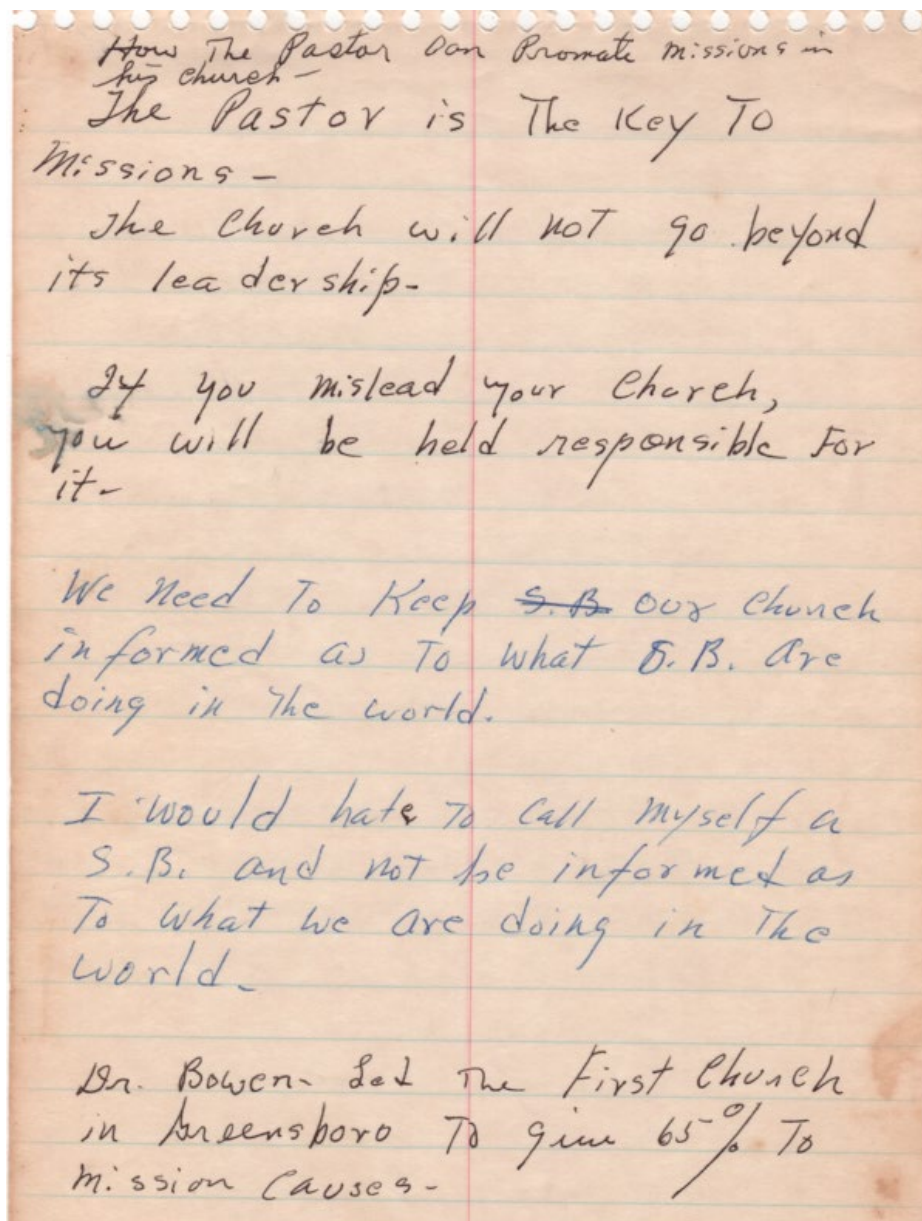 How The Pastor Can Promate missions in
his church -
The Pastor is The Key To
Missions -
The Church will not go beyond
its leadership -
If you mislead your Church,
you will be held responsible For
it -
We Need To Keep S.B. our church
informed as To what S.B. are
doing in The world.
I would hate To Call myself a
S.B. and not be informed as
To what we are doing in The
world -
Dr. Bowen - Led The First Church
in Greensboro To give 65% To
Mission Causes -